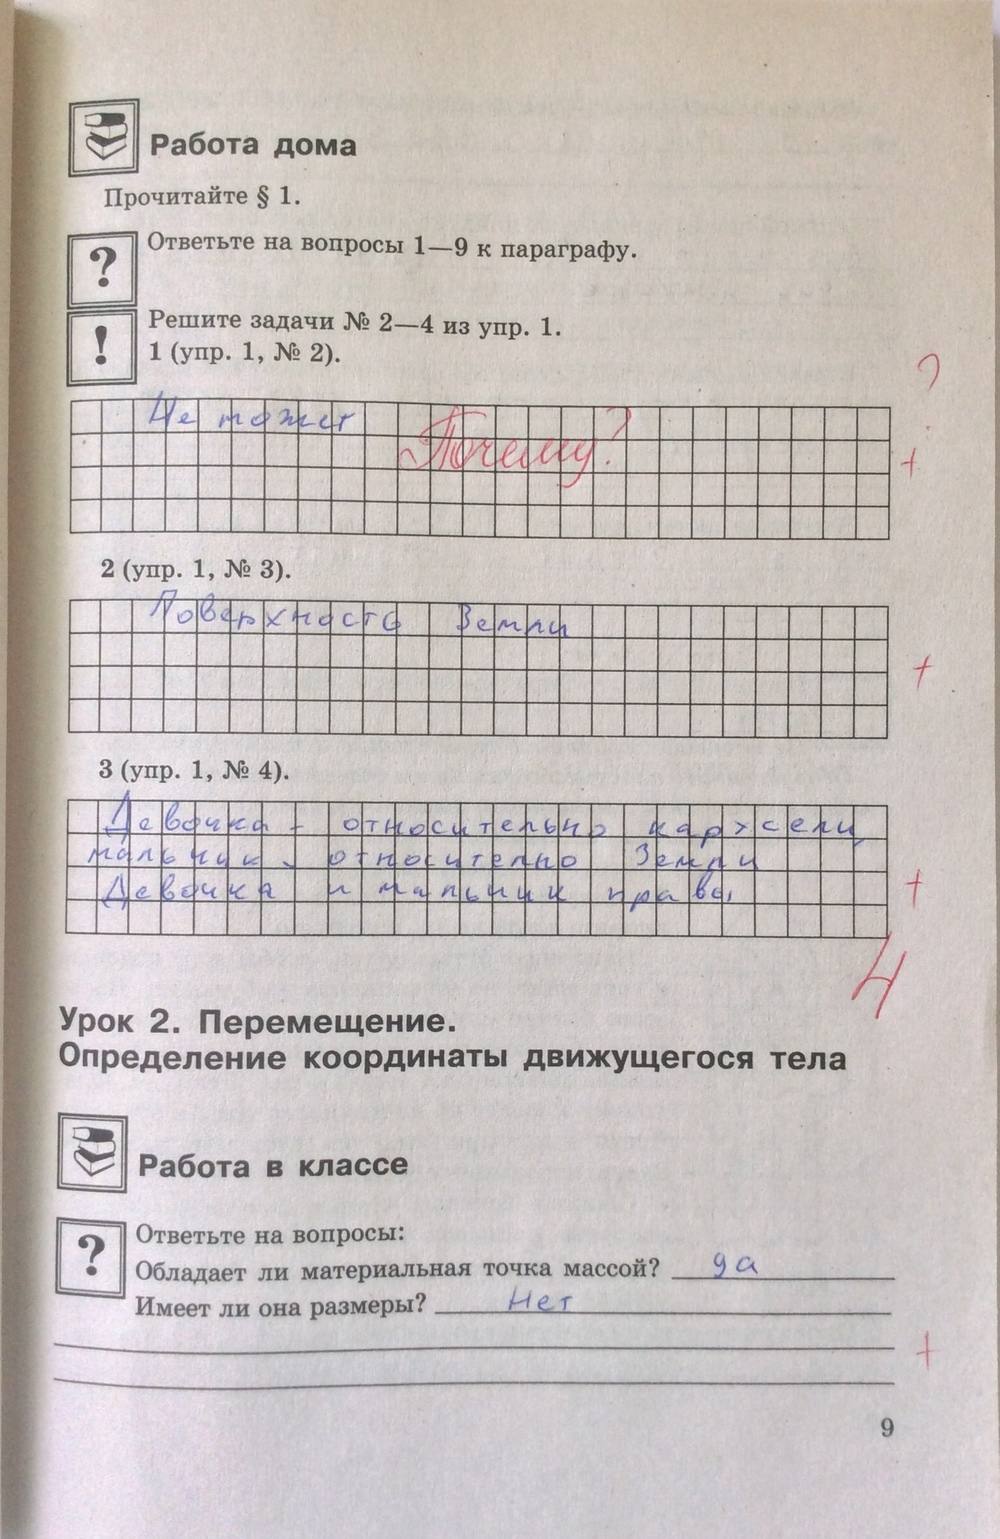 Работа дома
Прочитайте § 1.
?
Ответьте на вопросы 1—9 к параграфу.
!
Решите задачи № 2—4 из упр. 1.
1 (упр. 1, № 2).
?
Не может
Почему?
+
2 (упр. 1, № 3).
Поверхность Земли
+
3 (упр. 1, № 4).
Девочка - относительно каржсели
мальчик - относително Земли
Девочка и мальчик правы
+
4
Урок 2. Перемещение.
Определение координаты движущегося тела
Работа в классе
?
Ответьте на вопросы:
Обладает ли материальная точка массой? да
Имеет ли она размеры? Нет
+
9